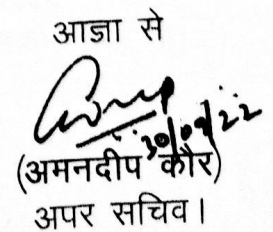 आज्ञा से
30/09/22
(अमनदीप कौर)
अपर सचिव।